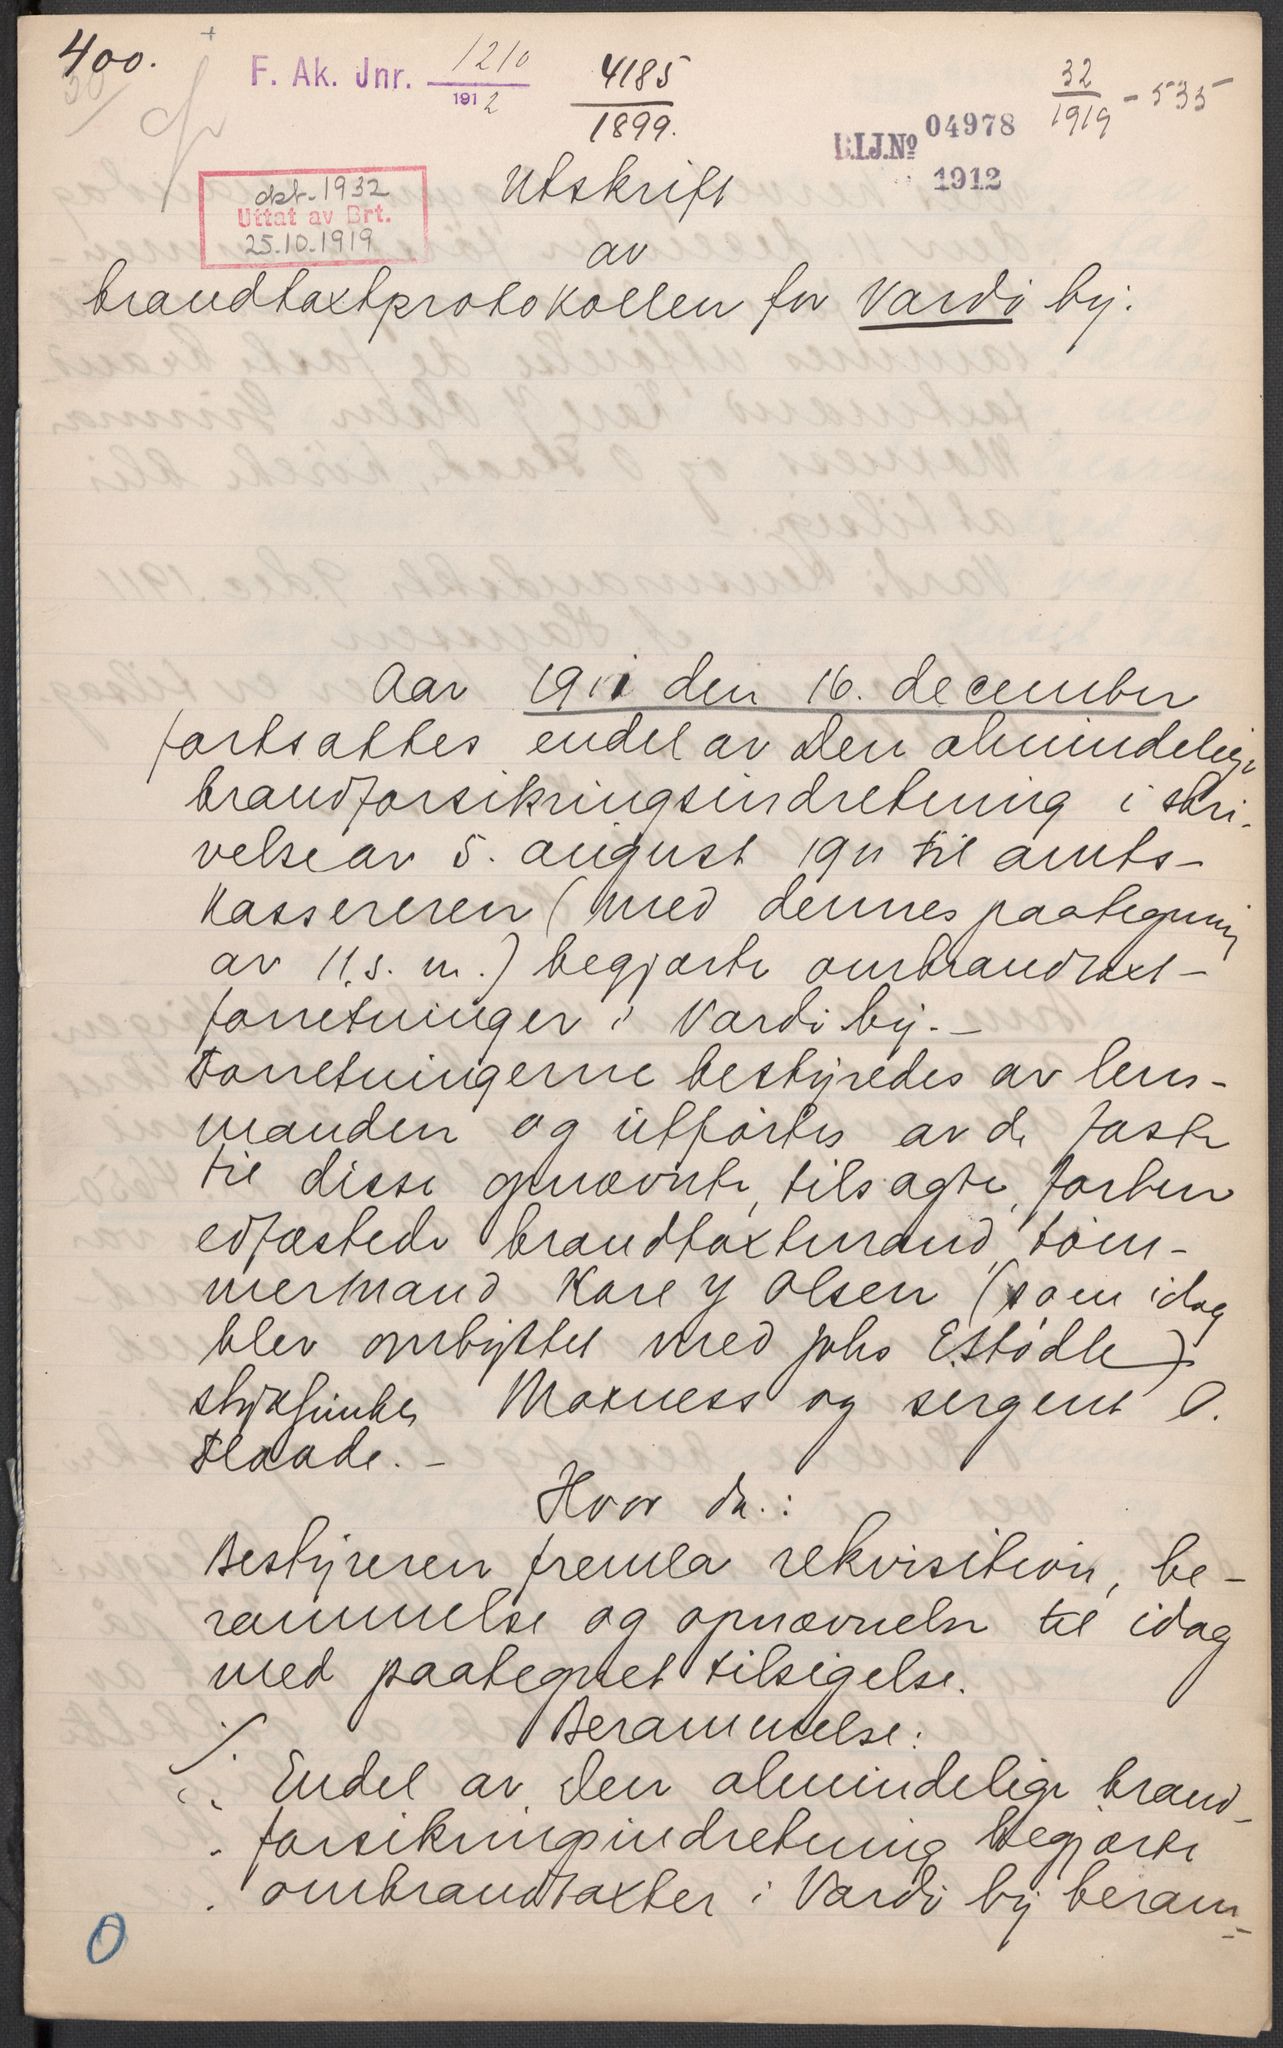 400.
F. Ak. Jnr. 1210
1912
4185
1899.
B.I.J.No 04978
1912
32
1919 - 535
dst. 1932
Uttat av Brt.
25.10.1919
Utskrift
av
brandtaxtprotokollen for Vardö by.
Aar 1911 den 16. december
fortsattes endel av den almindelige
brandforsikringsindretning i skri-
velse av 5. august 1911 til amts-
kassereren (med dennes paategning
av 11. s. m.) begjærte ombrandtaxt-
forretninger i Vardö by. -
Forretningerne bestyredes av lens-
manden og utførtes av de faste
til disse opnævnte, tilsagte, forhen
edfæstede brandtaxtmænd, töm-
mermand Kare J Olsen (som idag
blev ombyttet med Johs E. Stödle)
Moxness og sergent O.
Flaade. -
Hvor da.:
Bestyreren fremla rekvisition, be-
rammelse og opnævnelse til idag
med paategnet tilsigelse.
Berammelse:
Endel av den almindelige brand-
forsikringsindretning begjærte
ombrandtaxter i Vardö by beram-
0